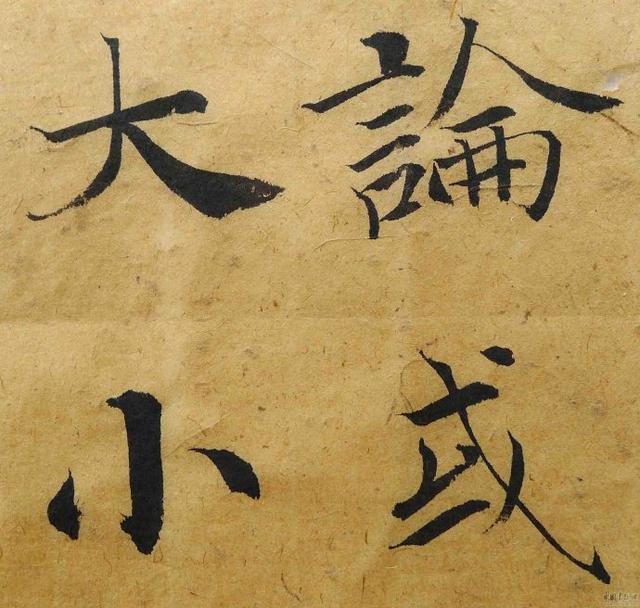 論或
大小